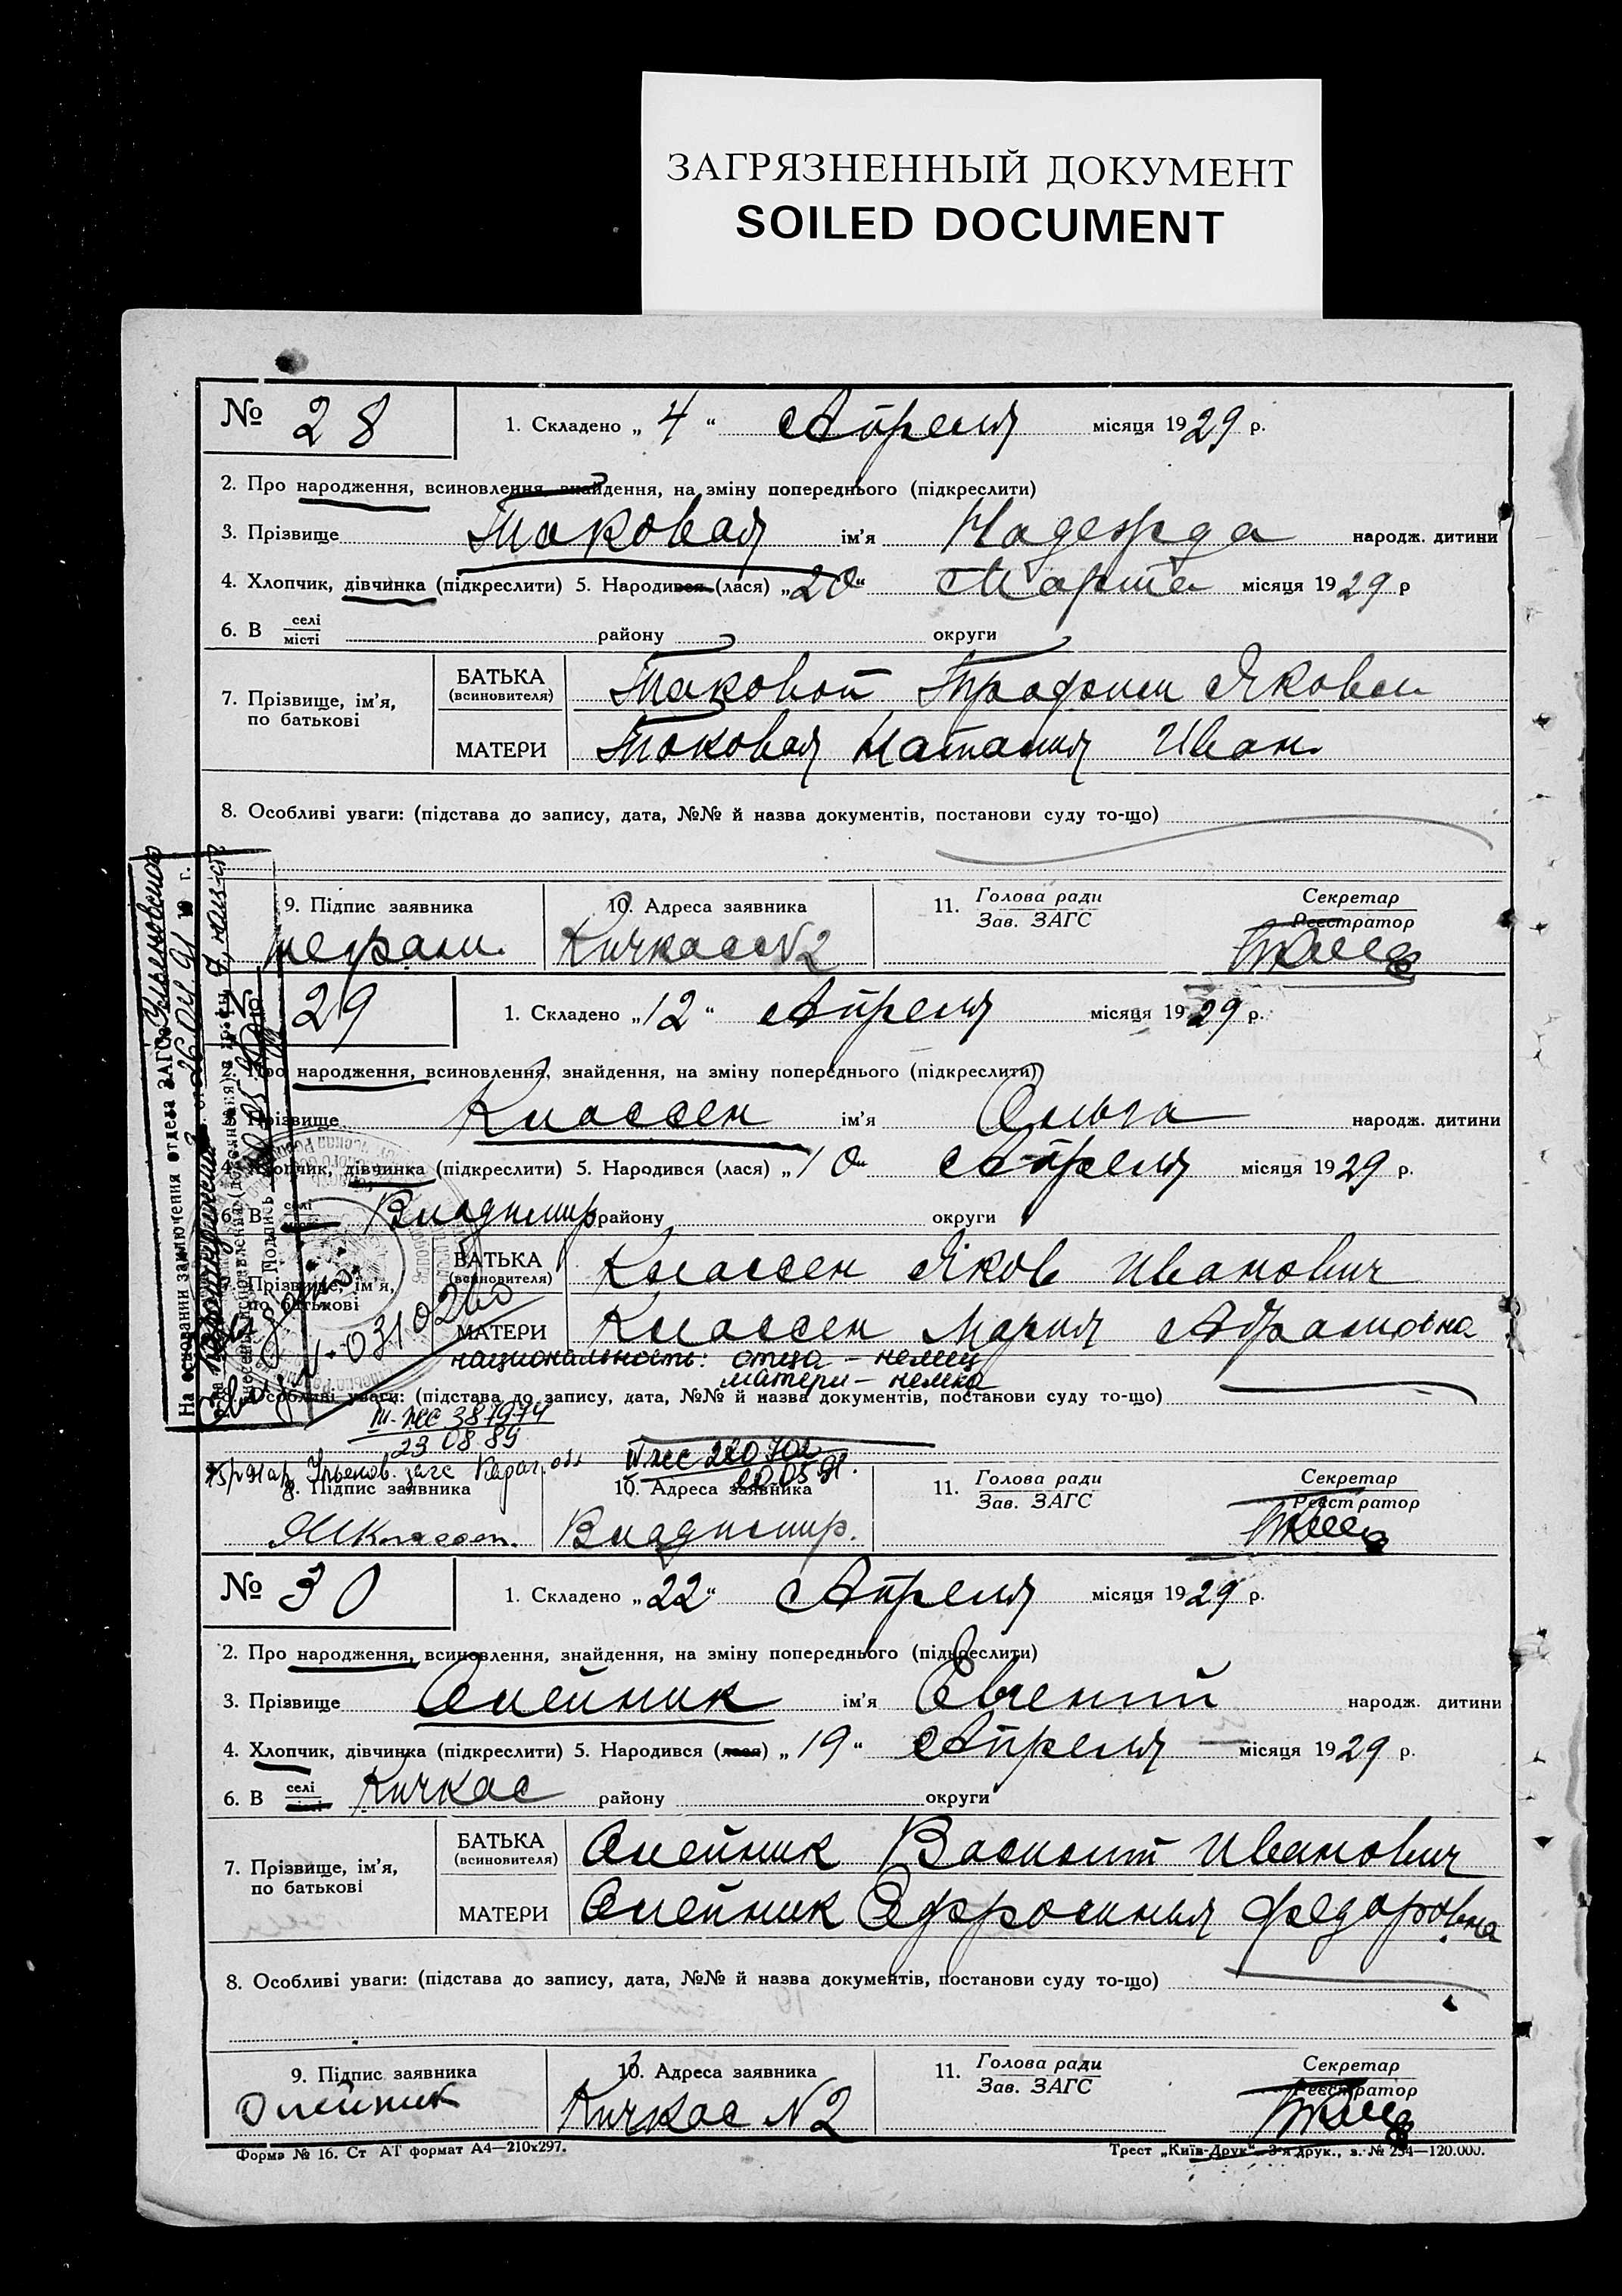 ЗАГРЯЗНЕННЫЙ ДОКУМЕНТ
SOILED DOCUMENT
№ 28 1. Складено „ 4 “ Апреля місяця 1929 р.
2. Про народження, всиновлення, знайдення, на зміну попереднього (підкреслити)
3. Прізвище Таковая ім’я Надежда народж. дитини
4. Хлопчик, дівчинка (підкреслити) 5. Народився (лася) „20“ Марта місяця 1929 р
6. В селі місті району округи
7. Прізвище, ім’я, по батькові
БАТЬКА (всиновителя) Таковой Трофим Яковл
МАТЕРИ Токовая Наталия Иван.
8. Особливі уваги: (підстава до запису, дата, №№ й назва документів, постанови суду то-що)
9. Підпис заявника 10. Адреса заявника 11. Голова ради Зав. ЗАГС Секретар Реєстратор
неграм. Кичкасс N2
29 1. Складено „12“ Апреля місяця 1929 р.
Про народження, всиновлення, знайдення, на зміну попереднього (підкреслити)
Прізвище Классен ім’я Ольга народж. дитини
4. Хлопчик, дівчинка (підкреслити) 5. Народився (лася) „10“ Апреля місяця 1929 р.
6. В селі Владимир району округи
7. Прізвище, ім’я, по батькові
БАТЬКА (всиновителя) Классен Яков Иванович
МАТЕРИ Классен Мария Абрамовна
национальность: отца – немец
матери – немка
Особливі уваги: (підстава до запису, дата, №№ й назва документів, постанови суду то-що)
III-ЖС 387974
23 08 89
Ульянов. загс Караг. обл
IV ЖС 220702
20.05 91.
9. Підпис заявника 10. Адреса заявника 11. Голова ради Зав. ЗАГС Секретар Реєстратор
ЯИКлассен. Владимир.
На основании заключения отдела ЗАГС Ульяновского
от 26.04 91 г.
Подпись
№ 30 1. Складено „22“ Апреля місяця 1929 р.
2. Про народження, всиновлення, знайдення, на зміну попереднього (підкреслити)
3. Прізвище Олейник ім’я Евгений народж. дитини
4. Хлопчик, дівчинка (підкреслити) 5. Народився (лася) „19“ Апреля місяця 1929 р.
6. В селі місті Кичкас району округи
7. Прізвище, ім’я, по батькові
БАТЬКА (всиновителя) Олейник Василий Иванович
МАТЕРИ Олейник Ефросиния Федоровна
8. Особливі уваги: (підстава до запису, дата, №№ й назва документів, постанови суду то-що)
9. Підпис заявника 10. Адреса заявника 11. Голова ради Зав. ЗАГС Секретар Реєстратор
Олейник Кичкас N2
Форма № 16. Ст АТ формат А4—210х297. Трест „Київ-Друк“ 3-я друк., з. № 254—120.000.